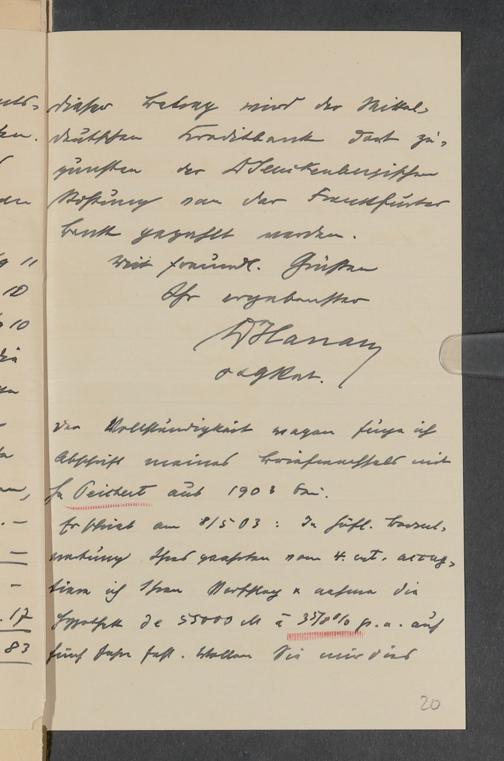 dieser Betrag wird der Mittel-
deutschen Kreditbank dort zu-
gunsten der Dr Senckenbergischen
Stiftung von der Frankfurter
Bank gezahlt werden.
Mit freundl. Grüßen
Ihr ergebenster
Hanau
Der Vollständigkeit wegen füge ich
Abschrift meines Briefwechsels mit
Fr Peichert aus 1903 bei.
Er schrieb am 8/5 03: In höfl. Beant-
wortung Ihres geehrten vom 4. crt. accep-
tiere ich Ihren Vorschlag & nehme die
Hypothek de 55000 M à 3 5/8 % p. a. auf
fünf Jahre fest. Wollen Sie mir dies
11
10
10
17
83
20